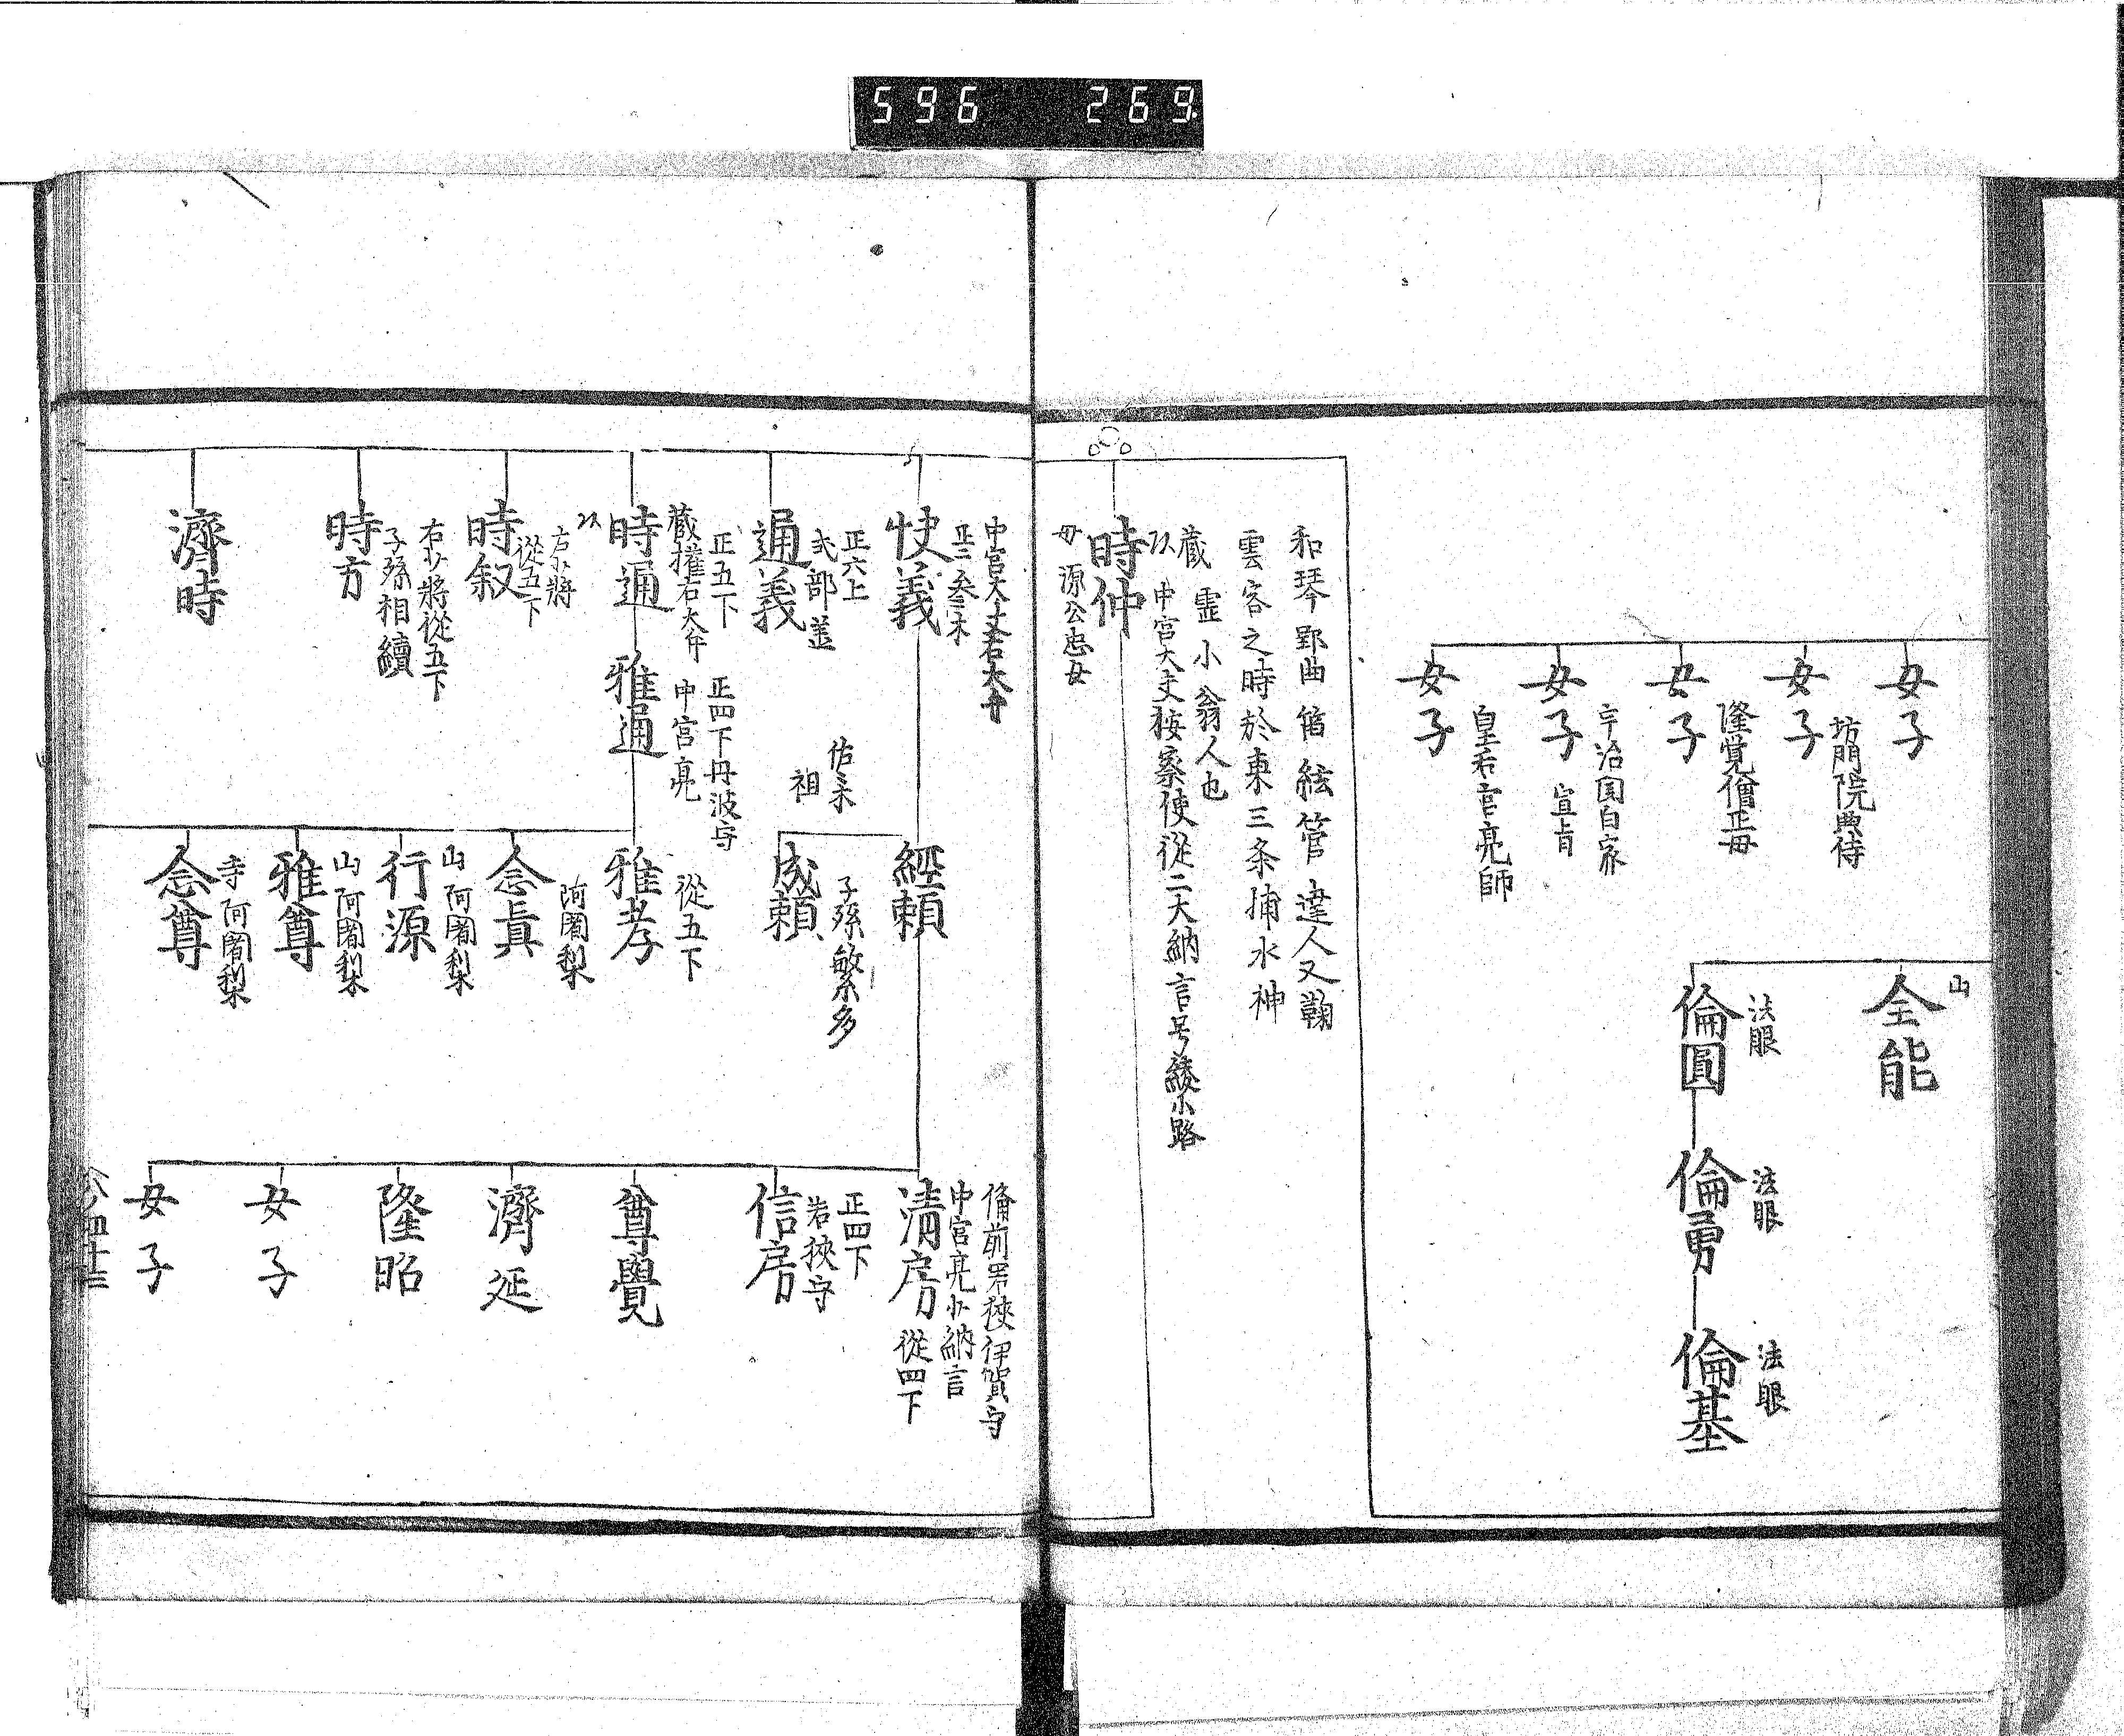 596 269
女子
坊門院典侍
女子
隆覚僧正母
女子
宇治関白家
宣旨
女子
皇后宮亮師
女子
山
全能
法眼
倫圓
法眼
倫勇
法眼
倫基
和琴郢曲笛絃管達人又鞠
雲客之時於東三条捕水神
蔵 霊小翁人也
中宮大夫按察使従二大納言号綾小路
時仲
母源公忠女
中宮大夫右大弁
正三参木
扶義
経頼
子孫繁多
成頼
佐々木
祖
備前若狭伊賀守
中宮亮少納言
清房
従四下
正四下
若狭守
信房
尊覺
濟延
隆昭
女子
女子
正六上
式部丞
通義
正五下
蔵権右大弁
時通
正四下丹波守
中宮亮
雅通
従五下
雅孝
阿闍梨
念眞
山阿闍梨
行源
山阿闍梨
雅尊
寺阿闍梨
念尊
右少将
従五下
時叙
右少将従五下
子孫相續
時方
濟時